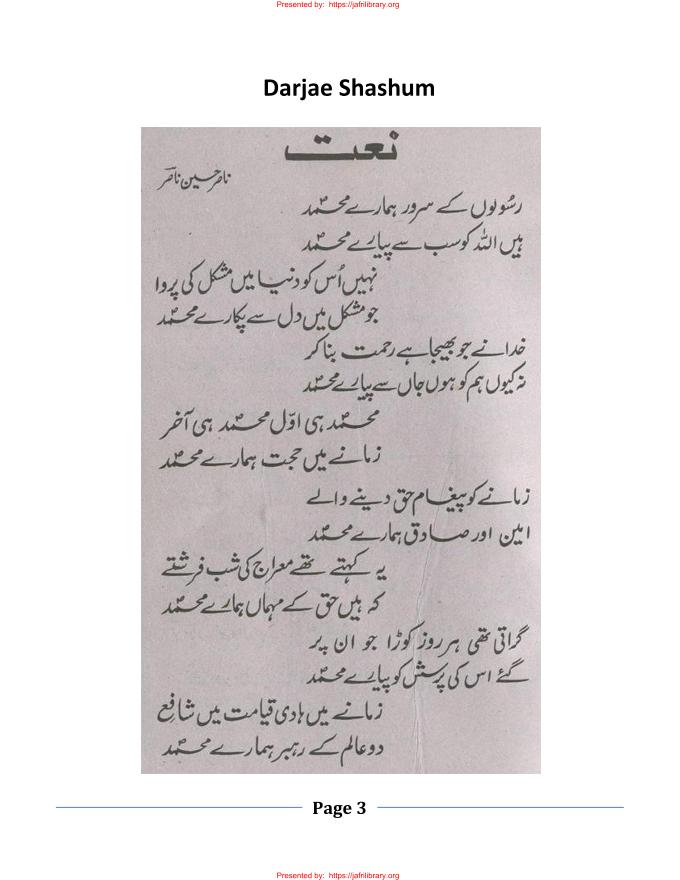 Presented by: https://jafrilibrary.org
Darjae Shashum
نعت
ناصر حسین ناصر
رسُولوں کے سرور ہمارے محمدؐ
ہیں اللہ کو سب سے پیارے محمدؐ
نہیں اُس کو دنیا میں مشکل کی پروا
جو مشکل میں دل سے پکارے محمدؐ
خدا نے جو بھیجا ہے رحمت بنا کر
نہ کیوں ہم کو ہوں جاں سے پیارے محمدؐ
محمدؐ ہی اوّل محمدؐ ہی آخر
زمانے میں حجت ہمارے محمدؐ
زمانے کو پیغام حق دینے والے
امین اور صادق ہمارے محمدؐ
یہ کہتے تھے معراج کی شب فرشتے
کہ ہیں حق کے مہماں ہمارے محمدؐ
گراتی تھی ہر روز کوڑا جو ان پر
گئے اس کی پرسش کو پیارے محمدؐ
زمانے میں ہادی قیامت میں شافع
دو عالم کے رہبر ہمارے محمدؐ
Page 3
Presented by: https://jafrilibrary.org